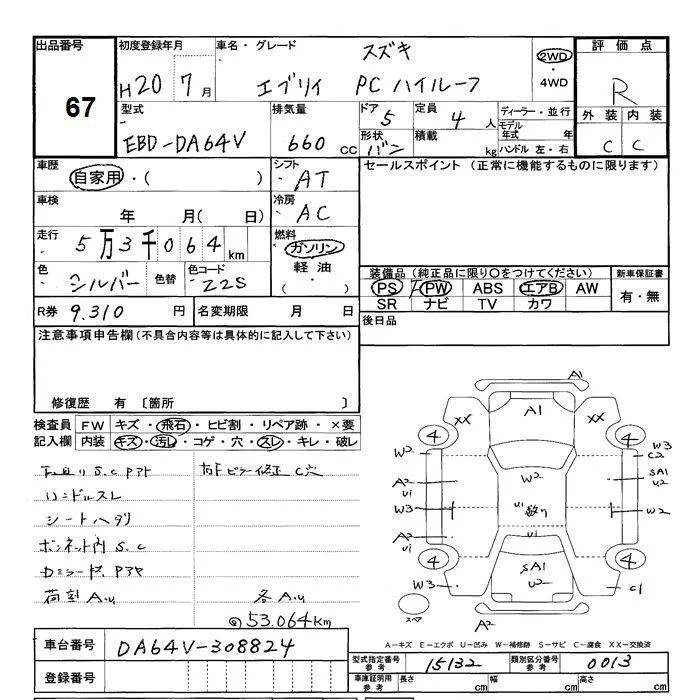 出品番号 67
初度登録年月 H20 7月
車名・グレード スズキ エブリイ PC ハイルーフ
2WD ・ 4WD
評価点 R
外装 内装
C C
型式 EBD-DA64V
排気量 660 CC
ドア 5
定員 4 人
形状 バン
積載 kg
ディーラー・並行
モデル年式 年
ハンドル 左・右
車歴 自家用・( )
シフト AT
セールスポイント (正常に機能するものに限ります)
車検 年 月(日)
冷房 AC
走行 5万3千064km
燃料 ガソリン 軽油 ・
色 シルバー 色替
色コード Z2S
装備品(純正品に限り○をつけてください)
PS PW ABS エアB AW
SR ナビ TV カワ
新車保証書 有・無
R券 9,310 円
名変期限 月 日
後日品
注意事項申告欄(不具合内容等は具体的に記入して下さい)
修復歴 有 〔箇所 〕
検査員 FW キズ・飛石・ヒビ割・リペア跡・×要
記入欄 内装 キズ・汚れ・コゲ・穴・スレ・キレ・破レ
S.C アト
ハンドルスレ
シートヘタリ
ボンネット内 S.C
荷室 A.U
各 A.U
53.064km
A1
A1
XX
XX
4
4
W2
W3
C2
A2
U1
W2
SA1
U2
U1
W2
A2
U1
U1
4
4
SA1
U2
W3
C1
スペア
A2
A-キズ E-エクボ U-凹み W-補修跡 S-サビ C-腐食 XX-交換済
車台番号 DA64V-308824
型式指定番号 参考 15132
類別区分番号 参考 0013
登録番号
車庫証明用 参考 長さ cm 幅 cm 高さ cm